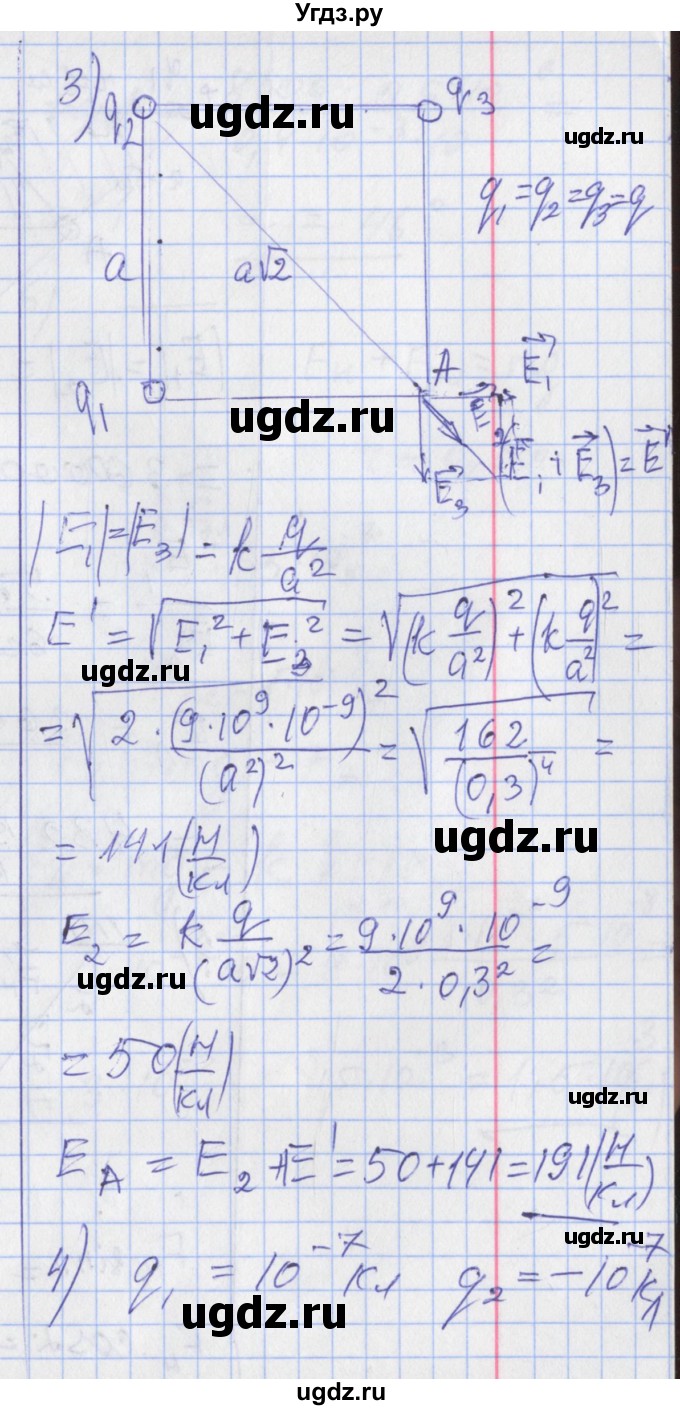 Угдз.ру
3)
q₂
q₃
ugdz.ru
ugdz.ru
q₁ = q₂ = q₃ = q
a
a√2
A
E⃗₁
q₁
ugdz.ru
E⃗₁
E⃗₃
(E⃗₁ + E⃗₃) = E⃗'
|E₁| = |E₃| = k q/a²
E' = √(E₁² + E₃²) = √((k q/a²)² + (k q/a²)²) =
ugdz.ru
= √(2·(9·10⁹·10⁻⁹)²/(a²)²) = √(162/(0,3)⁴) =
ugdz.ru
= 141 (Н/Кл)
E₂ = k q/(a√2)² = 9·10⁹·10⁻⁹/2·0,3² =
ugdz.ru
= 50 (Н/Кл)
ugdz.ru
E_A = E₂ + E' = 50 + 141 = 191 (Н/Кл)
ugdz.ru
4) q₁ = 10⁻⁷ Кл q₂ = -10⁻⁷ Кл
ugdz.ru
ugdz.ru